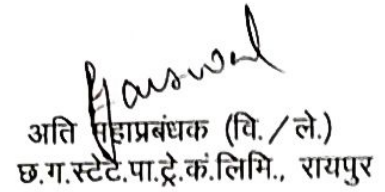 अति महाप्रबंधक (वि./ले.)
छ.ग.स्टेटे.पा.ट्रे.कं.लिमि., रायपुर